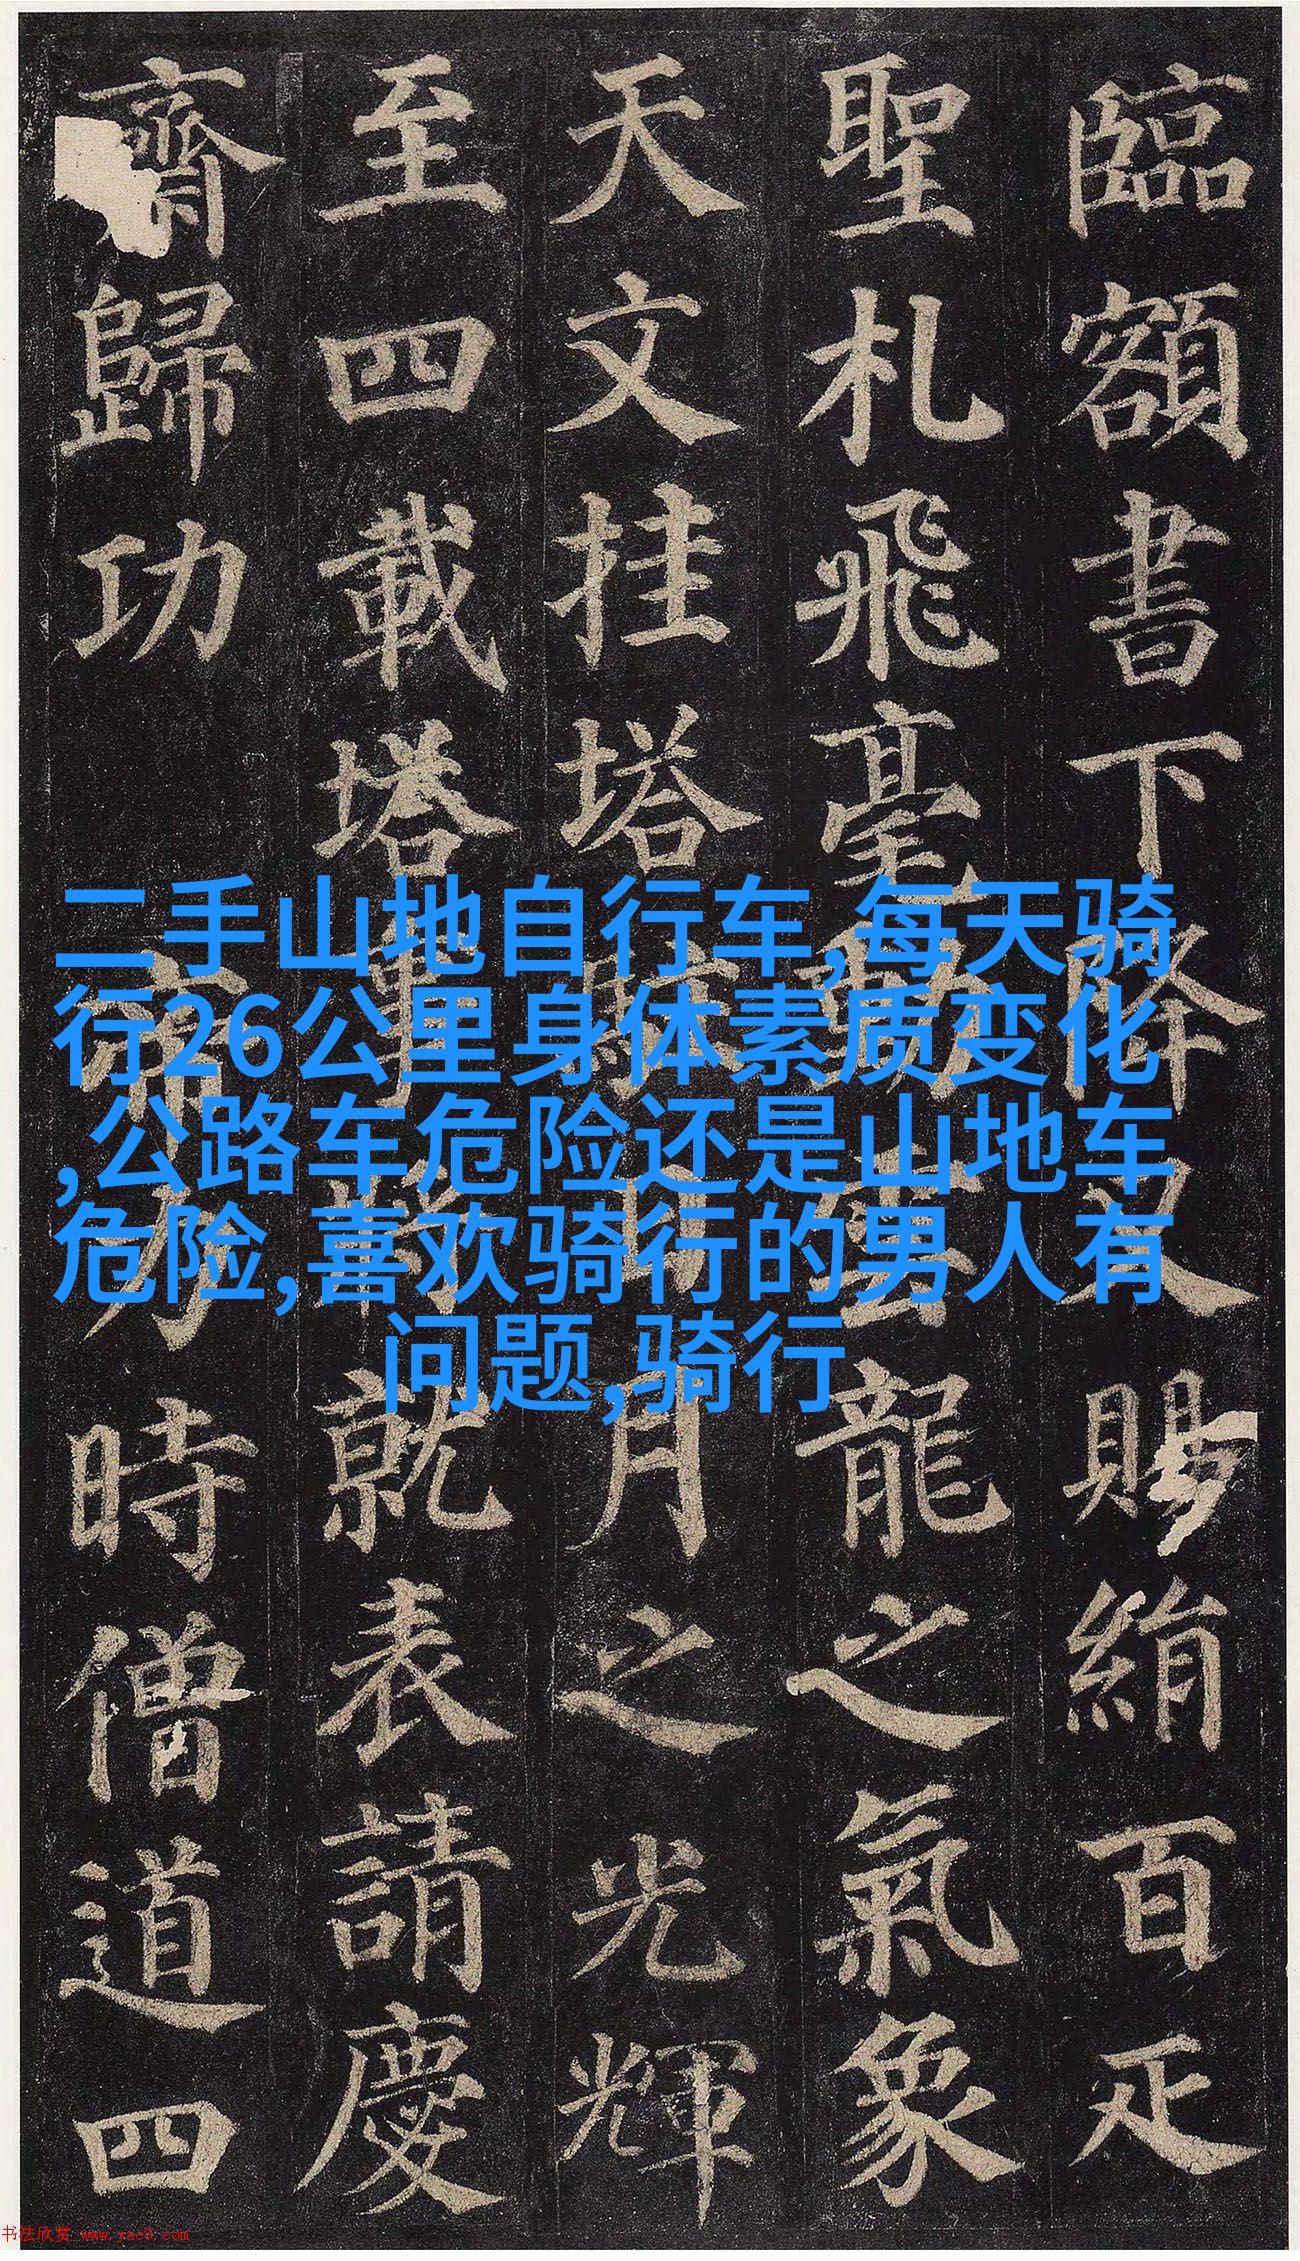 臨額書下降又賜絹百疋
聖札飛毫動雲龍之氣象
天文挂塔駐日月之光輝
至四載塔事將就表請慶
齋歸功
帝力時僧道四
二手山地自行车,每天骑
行26公里身体素质变化
,公路车危险还是山地车
危险,喜欢骑行的男人有
问题,骑行
书法欣赏 www.yac8.com